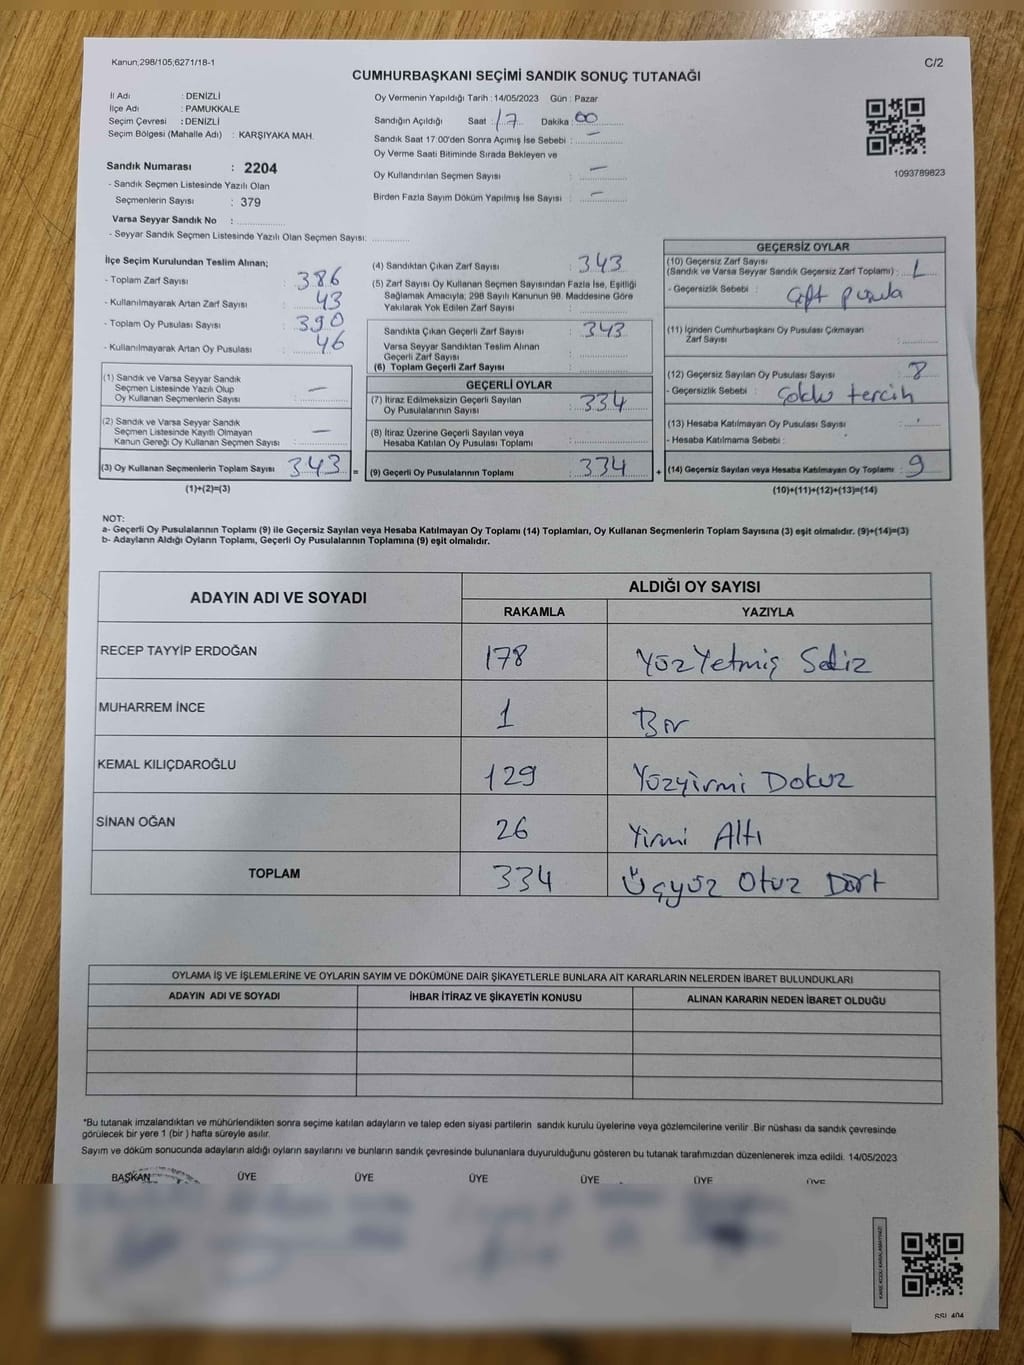 Kanun;298/105;6271/18-1
C/2
CUMHURBAŞKANI SEÇİMİ SANDIK SONUÇ TUTANAĞI
İl Adı : DENİZLİ
İlçe Adı : PAMUKKALE
Seçim Çevresi : DENİZLİ
Seçim Bölgesi (Mahalle Adı) : KARŞIYAKA MAH.
Sandık Numarası : 2204
- Sandık Seçmen Listesinde Yazılı Olan
Seçmenlerin Sayısı : 379
Varsa Seyyar Sandık No :
- Seyyar Sandık Seçmen Listesinde Yazılı Olan Seçmen Sayısı:
Oy Vermenin Yapıldığı Tarih : 14/05/2023 Gün : Pazar
Sandığın Açıldığı Saat : 17 Dakika : 00
Sandık Saat 17:00'den Sonra Açımış İse Sebebi : —
Oy Verme Saati Bitiminde Sırada Bekleyen ve
Oy Kullandırılan Seçmen Sayısı : —
Birden Fazla Sayım Döküm Yapılmış İse Sayısı : —
1093789823
İlçe Seçim Kurulundan Teslim Alınan;
- Toplam Zarf Sayısı : 386
- Kullanılmayarak Artan Zarf Sayısı : 43
- Toplam Oy Pusulası Sayısı : 390
- Kullanılmayarak Artan Oy Pusulası : 46
(1) Sandık ve Varsa Seyyar Sandık
Seçmen Listesinde Yazılı Olup
Oy Kullanan Seçmenlerin Sayısı : —
(2) Sandık ve Varsa Seyyar Sandık
Seçmen Listesinde Kayıtlı Olmayan
Kanun Gereği Oy Kullanan Seçmen Sayısı : —
(3) Oy Kullanan Seçmenlerin Toplam Sayısı : 343 =
(1)+(2)=(3)
(4) Sandıktan Çıkan Zarf Sayısı : 343
(5) Zarf Sayısı Oy Kullanan Seçmen Sayısından Fazla İse, Eşitliği
Sağlamak Amacıyla; 298 Sayılı Kanunun 98. Maddesine Göre
Yakılarak Yok Edilen Zarf Sayısı :
Sandıkta Çıkan Geçerli Zarf Sayısı : 343
Varsa Seyyar Sandıktan Teslim Alınan
Geçerli Zarf Sayısı :
(6) Toplam Geçerli Zarf Sayısı :
GEÇERLİ OYLAR
(7) İtiraz Edilmeksizin Geçerli Sayılan
Oy Pusulalarının Sayısı : 334
(8) İtiraz Üzerine Geçerli Sayılan veya
Hesaba Katılan Oy Pusulası Toplamı :
(9) Geçerli Oy Pusulalarının Toplamı : 334 +
GEÇERSİZ OYLAR
(10) Geçersiz Zarf Sayısı
(Sandık ve Varsa Seyyar Sandık Geçersiz Zarf Toplamı) : 1
- Geçersizlik Sebebi : Çift pusula
(11) İçinden Cumhurbaşkanı Oy Pusulası Çıkmayan
Zarf Sayısı :
(12) Geçersiz Sayılan Oy Pusulası Sayısı : 8
- Geçersizlik Sebebi : çoklu tercih
(13) Hesaba Katılmayan Oy Pusulası Sayısı :
- Hesaba Katılmama Sebebi :
(14) Geçersiz Sayılan veya Hesaba Katılmayan Oy Toplamı : 9
(10)+(11)+(12)+(13)=(14)
NOT:
a- Geçerli Oy Pusulalarının Toplamı (9) ile Geçersiz Sayılan veya Hesaba Katılmayan Oy Toplamı (14) Toplamları, Oy Kullanan Seçmenlerin Toplam Sayısına (3) eşit olmalıdır. (9)+(14)=(3)
b- Adayların Aldığı Oyların Toplamı, Geçerli Oy Pusulalarının Toplamına (9) eşit olmalıdır.
ADAYIN ADI VE SOYADI
ALDIĞI OY SAYISI
RAKAMLA YAZIYLA
RECEP TAYYİP ERDOĞAN 178 YüzYetmiş Sekiz
MUHARREM İNCE 1 Bir
KEMAL KILIÇDAROĞLU 129 Yüzyirmi Dokuz
SİNAN OĞAN 26 Yirmi Altı
TOPLAM 334 Üçyüz Otuz Dört
OYLAMA İŞ VE İŞLEMLERİNE VE OYLARIN SAYIM VE DÖKÜMÜNE DAİR ŞİKAYETLERLE BUNLARA AİT KARARLARIN NELERDEN İBARET BULUNDUKLARI
ADAYIN ADI VE SOYADI İHBAR İTİRAZ VE ŞİKAYETİN KONUSU ALINAN KARARIN NEDEN İBARET OLDUĞU
*Bu tutanak imzalandıktan ve mühürlendikten sonra seçime katılan adayların ve talep eden siyasi partilerin sandık kurulu üyelerine veya gözlemcilerine verilir .Bir nüshası da sandık çevresinde
görülecek bir yere 1 (bir ) hafta süreyle asılır.
Sayım ve döküm sonucunda adayların aldığı oyların sayılarını ve bunların sandık çevresinde bulunanlara duyurulduğunu gösteren bu tutanak tarafımızdan düzenlenerek imza edildi. 14/05/2023
BAŞKAN ÜYE ÜYE ÜYE ÜYE ÜYE ÜYE